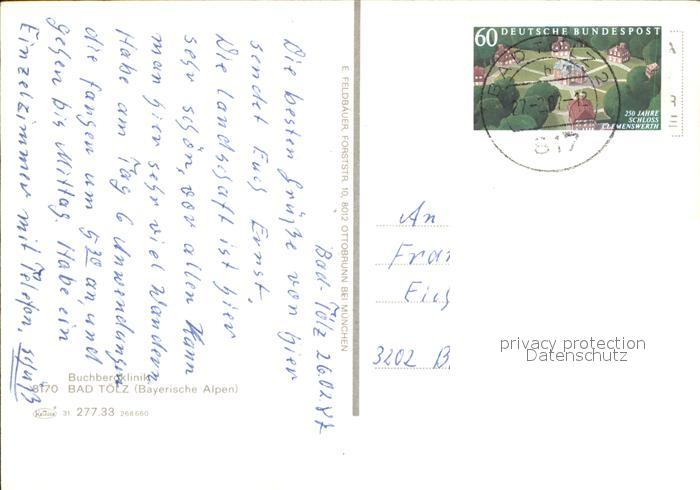 Bad-Tölz 26.02.87
Die besten Grüße von hier
sendet Euch Ernst,
Die Landschaft ist hier
sehr schön, vor allen Kann
man hier sehr viel Wandern
Habe am Tag 6 Anwendungen
die fangen um 5³⁰ an, und
gehen bis Mittag. Habe ein
Einzelzimmer mit Telefon,
Buchbergklinik
8170 BAD TÖLZ (Bayerische Alpen)
31 277.33 268560
E. FELDBAUER, FORSTSTR. 10, 8012 OTTOBRUNN BEI MÜNCHEN
60 DEUTSCHE BUNDESPOST
250 JAHRE
SCHLOSS
CLEMENSWERTH
BAD TÖLZ 2
817
An
3202 B
privacy protection
Datenschutz